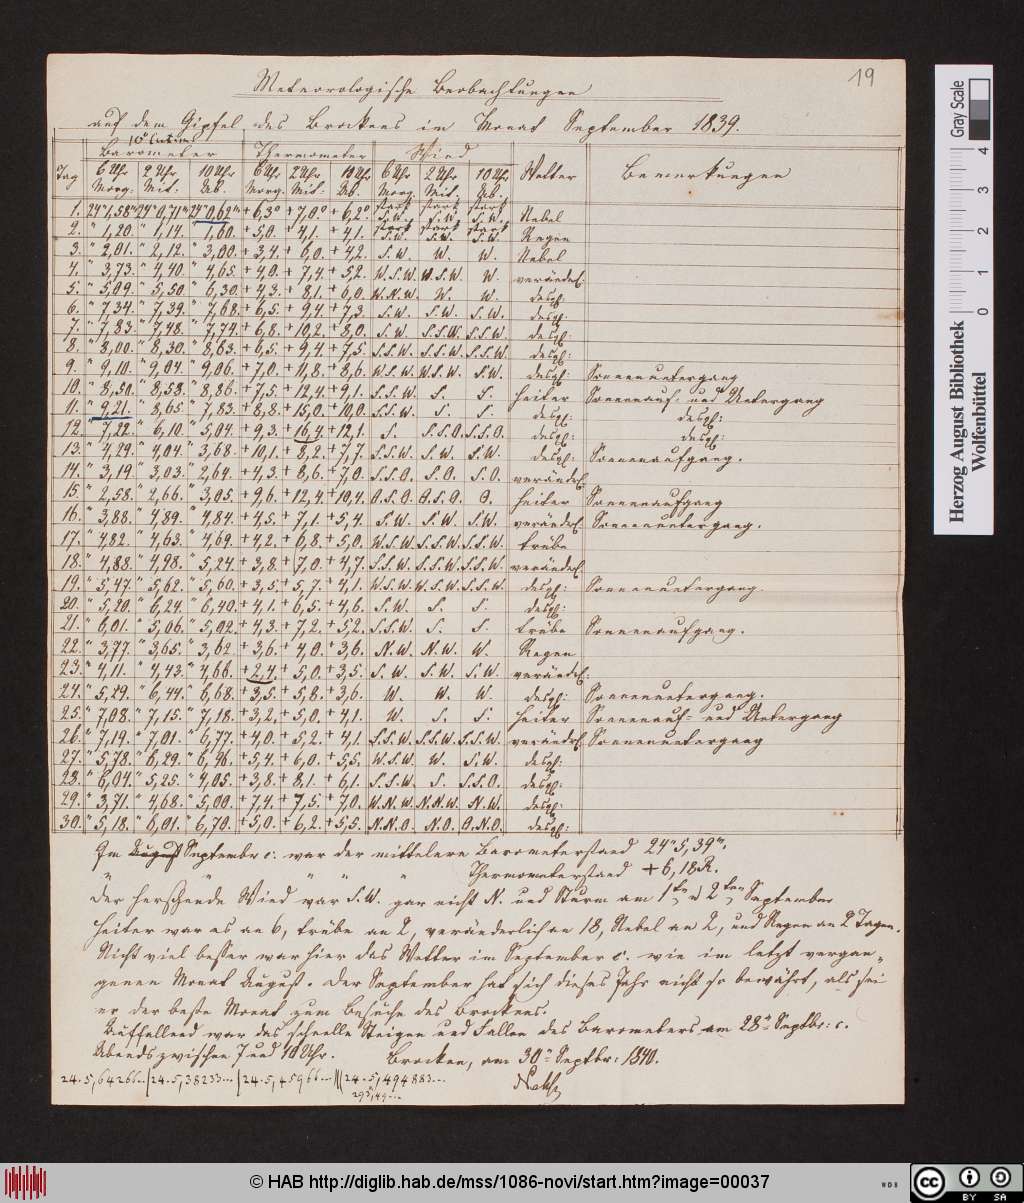 19
Meteorologische Beobachtungen
auf dem Gipfel des Brockens im Monat September 1839.
Barometer Thermometer Wind
Tag 6 Uhr Morg: 2 Uhr Mit: 10 Uhr Ab. 6 Uhr Morg: 2 Uhr Mit: 10 Uhr Ab. 6 Uhr Morg. 2 Uhr Mit. 10 Uhr Ab. Wetter Bemerkungen
1. 24" 1,58''' 24" 0,71''' 24" 0,62''' + 6,3° + 7,0° + 6,2° stark S.W. stark S.W. stark S.W. Nebel
2. " 1,20. " 1,14. " 1,60. + 5,0. + 4,1. + 4,1. stark S.W. stark S.W. stark S.W. Regen
3. " 2,01. " 2,12. " 3,00. + 3,4. + 6,0. + 4,2. S.W. W. W. Nebel
4. " 3,73. " 4,40. " 4,65. + 4,0. + 7,4. + 5,2. W.S.W. W.S.W. W. veränderl.
5. " 5,09. " 5,50. " 6,30. + 4,3. + 8,1. + 6,0. W.N.W. W. W. desgl:
6. " 7,34. " 7,39. " 7,68. + 6,5. + 9,4. + 7,3. S.W. S.W. S.W. desgl:
7. " 7,83. " 7,48. " 7,74. + 6,8. + 10,2. + 8,0. S.W. S.S.W. S.S.W. desgl:
8. " 8,00. " 8,30. " 8,63. + 6,5. + 9,4. + 7,5. S.S.W. S.S.W. S.S.W. desgl:
9. " 9,10. " 9,04. " 9,06. + 7,0. + 11,8. + 8,6. W.S.W. W.S.W. S.W. desgl: Sonnenuntergang
10. " 8,50. " 8,58. " 8,86. + 7,5. + 12,4. + 9,1. S.S.W. S. S. heiter Sonnenauf- und Untergang
11. " 9,21. " 8,65. " 7,83. + 8,8. + 15,0. + 10,0. S.S.W. S. S. desgl: desgl:
12. " 7,22. " 6,10. " 5,04. + 9,3. + 16,4. + 12,1. S. S.S.O. S.S.O. desgl: desgl:
13. " 4,29. " 4,04. " 3,68. + 10,1. + 8,2. + 7,7. S.S.W. S.W. S.W. desgl: Sonnenaufgang.
14. " 3,19. " 3,03. " 2,64. + 4,3. + 8,6. + 7,0. S.S.O. S.O. S.O. veränderl.
15. " 2,58. " 2,66. " 3,05. + 9,6. + 12,4. + 10,4. O.S.O. O.S.O. O. heiter Sonnenaufgang
16. " 3,88. " 4,89. " 4,84. + 4,5. + 7,1. + 5,4. S.W. S.W. S.W. veränderl. Sonnenuntergang.
17. " 4,82. " 4,63. " 4,69. + 4,2. + 6,8. + 5,0. W.S.W. S.S.W. S.S.W. trübe
18. " 4,88. " 4,98. " 5,24. + 3,8. + 7,0. + 4,7. S.S.W. S.S.W. S.S.W. veränderl.
19. " 5,47. " 5,62. " 5,60. + 3,5. + 5,7. + 4,1. W.S.W. W.S.W. S.S.W. desgl: Sonnenuntergang.
20. " 5,20. " 6,24. " 6,40. + 4,1. + 6,5. + 4,6. S.W. S. S. desgl:
21. " 6,01. " 5,06. " 5,02. + 4,3. + 7,2. + 5,2. S.S.W. S. S. trübe Sonnenaufgang.
22. " 3,77. " 3,65. " 3,62. + 3,6. + 4,0. + 3,6. N.W. N.W. W. Regen
23. " 4,11. " 4,43. " 4,66. + 2,4. + 5,0. + 3,5. S.W. S.W. S.W. veränderl:
24. " 5,29. " 6,44. " 6,68. + 3,5. + 5,8. + 3,6. W. W. W. desgl: Sonnenuntergang.
25. " 7,08. " 7,15. " 7,18. + 3,2. + 5,0. + 4,1. W. S. S. heiter Sonnenauf- und Untergang
26. " 7,19. " 7,01. " 6,77. + 4,0. + 5,2. + 4,1. S.S.W. S.S.W. S.S.W. veränderl. Sonnenuntergang
27. " 5,78. " 6,29. " 6,46. + 5,4. + 6,0. + 5,5. W.S.W. W. S.W. desgl:
28. " 6,04. " 5,25. " 4,05. + 3,8. + 8,1. + 6,1. S.S.W. S. S.S.O. desgl:
29. " 3,71. " 4,68. " 5,00. + 7,4. + 7,5. + 7,0. W.N.W. N.N.W. N.W. desgl:
30. " 5,18. " 6,01. " 6,70. + 5,0. + 6,2. + 5,5. N.N.O. N.O. O.N.O. desgl:
Im August September c. war der mittelere Barometerstand 24" 5,39'''.
" " " " " Thermometerstand + 6,18 R.
Der herschende Wind war S.W. gar nicht N. und Sturm am 1ten u 2ten September
Heiter war es an 6, trübe an 2, veränderlich an 18, Nebel an 2, und Regen an 2 Tagen.
Nicht viel besser war hier das Wetter im September c. wie im letzt vergan-
genen Monat August. Der September hat sich dieses Jahr nicht so bewährt, als sei
er der beste Monat zum Besuche des Brockens.
Auffallend war das schnelle Steigen und Fallen des Barometers am 28t Septbr: c.
Abends zwischen 7 und 10 Uhr. Brocken, am 30t Septbr: 1840.
Nehse
24.5,64266... 24.5,38233... 24.5,45966... 24.5,494883...
Gray Scale
0 1 2 3 4
Herzog August Bibliothek
Wolfenbüttel
© HAB http://diglib.hab.de/mss/1086-novi/start.htm?image=00037
WDB
cc BY SA